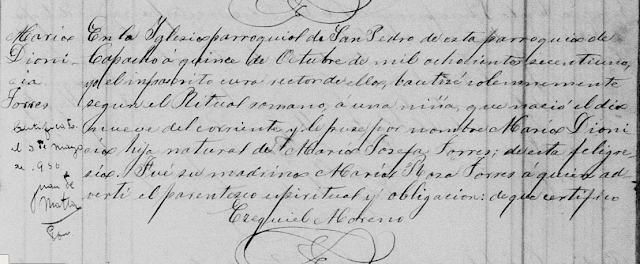 Maria
Dioni
cia
Torres
Certificose
el 3 de Mayo
de 950
Juan de
Matta
En la Iglesia parroquial de San Pedro de esta parroquia de
Capacho á quince de Octubre de mil ochocientos secentiuno,
yo el infrascrito cura rector de ella, bautizé solemnemente
segun el Ritual romano, a una niña, que nació el dia
nueve del corriente y le puse por nombre Maria Dioni
cia hija natural de Maria Josefa Torres; de esta feligre
sia. Fué su madrina Maria Rosa Torres á quien ad
verti el parentesco espiritual y obligacion: de que certifico
Ezequiel Moreno